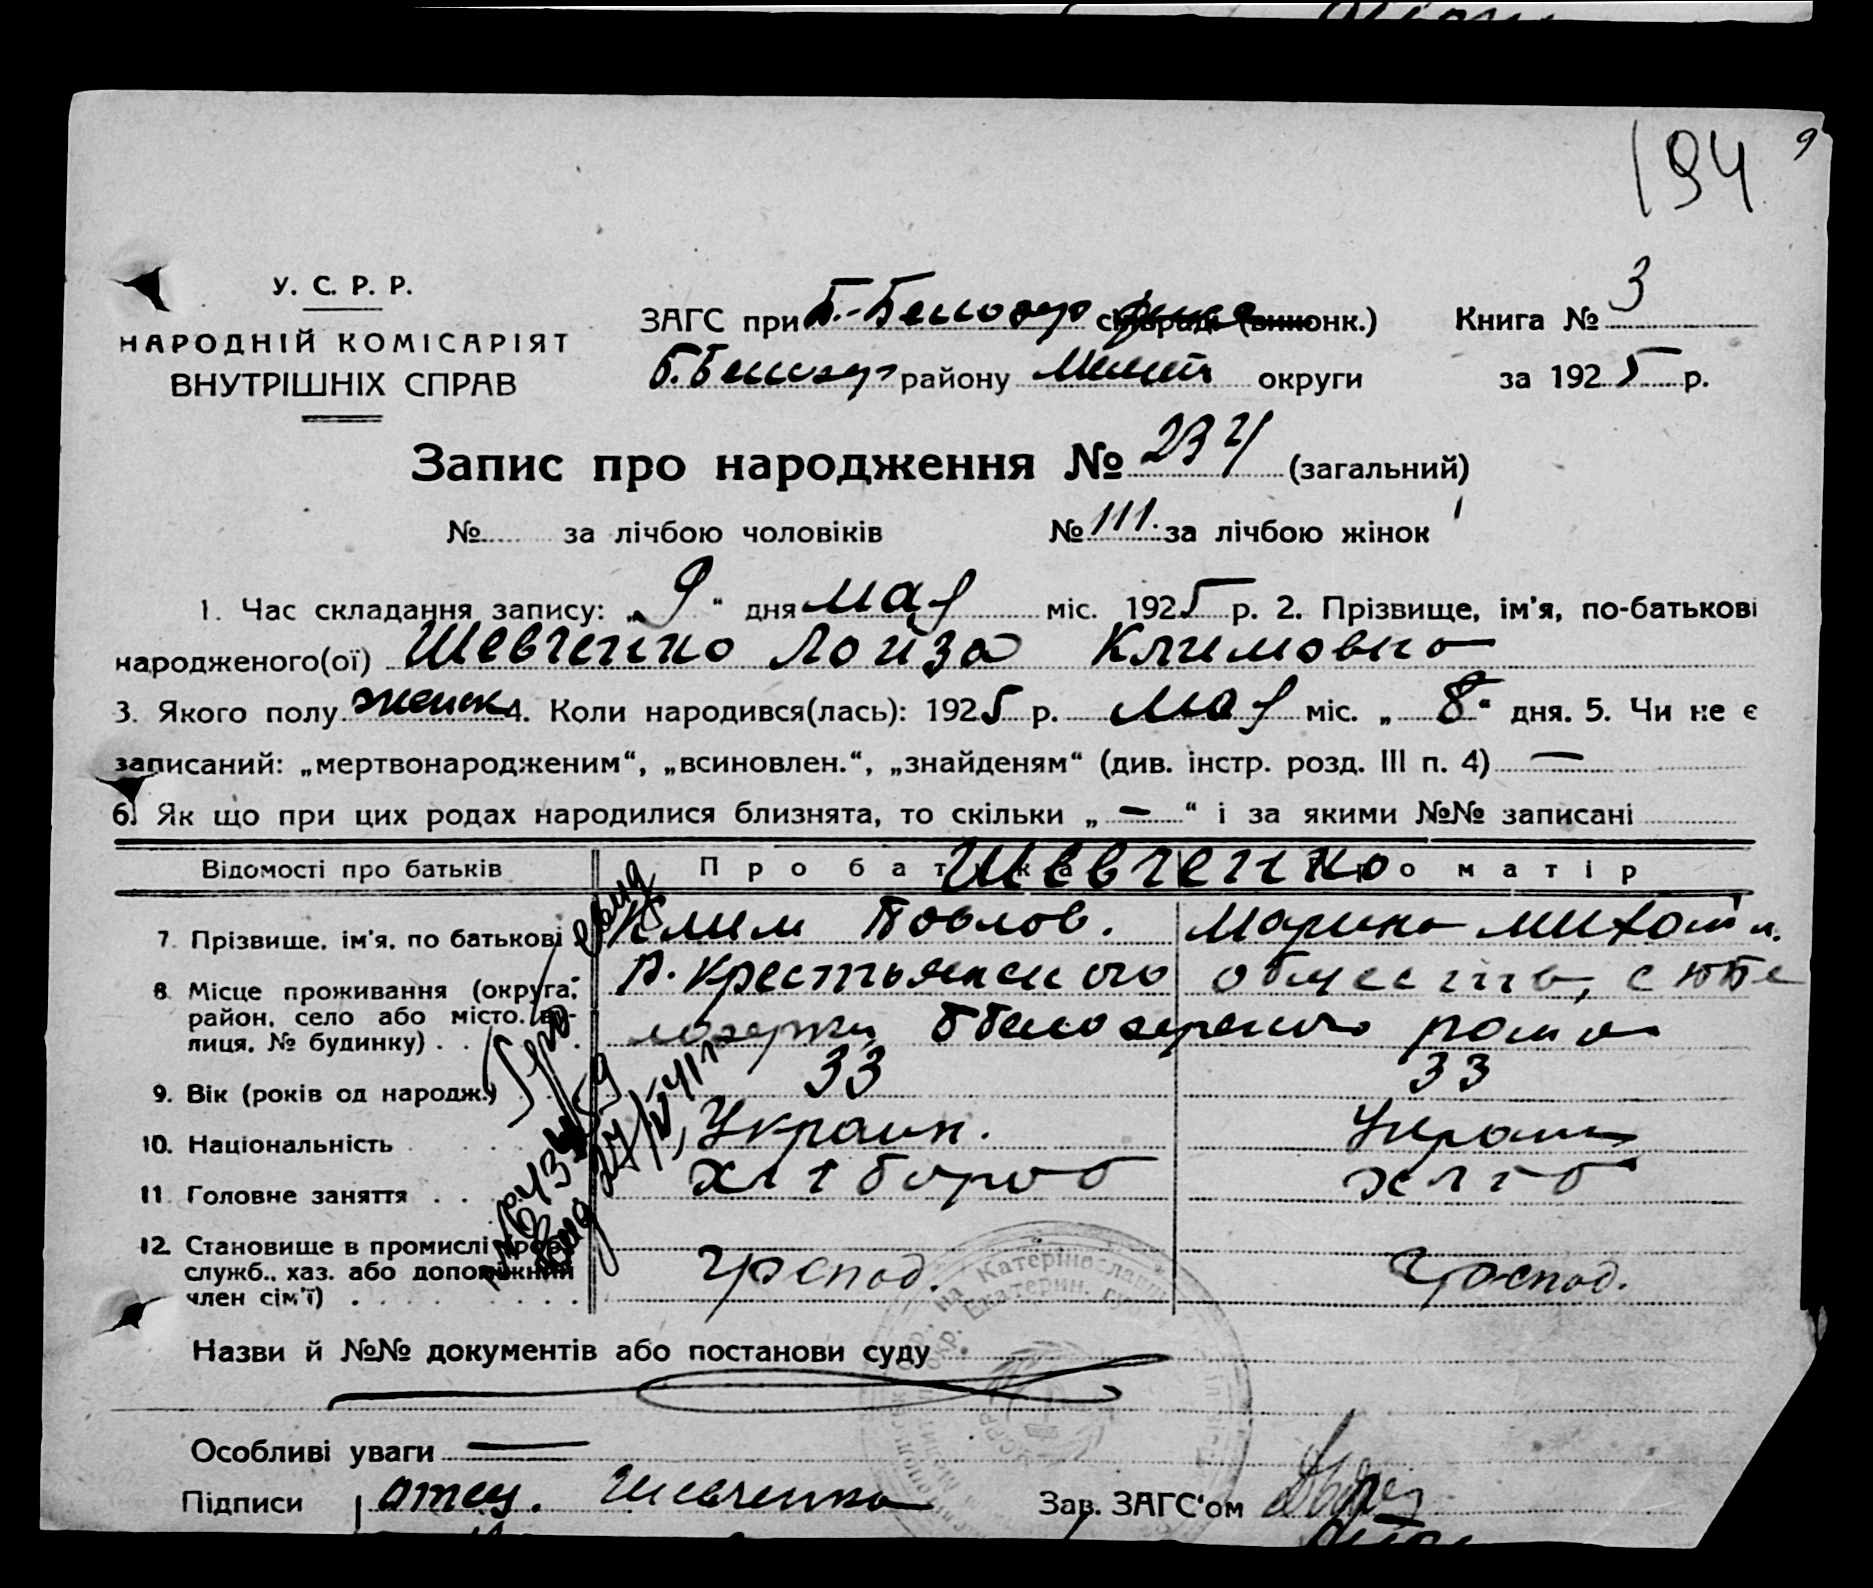 194 9
У. С. Р. Р.
НАРОДНІЙ КОМІСАРІЯТ
ВНУТРІШНІХ СПРАВ
ЗАГС при Б.-Белозер (виконк.)
Книга № 3
Б.Белозер району Мелит округи
за 1925 р.
Запис про народження № 234 (загальний)
№ за лічбою чоловіків № 111. за лічбою жінок
1. Час складання запису: „9“ дня мая міс. 1925 р. 2. Прізвище, ім'я, по-батькові
народженого(ої) Шевченко Лойза Климовна
3. Якого полу женск 4. Коли народився(лась): 1925 р. мая міс. „8“ дня. 5. Чи не є
записаний: „мертвонародженим“, „всиновлен.“, „знайденям“ (див. інстр. розд. III п. 4) —
6. Як що при цих родах народилися близнята, то скільки „—“ і за якими №№ записані
Відомості про батьків Про батька Шевченко Про матір
7. Прізвище, ім'я, по батькові Клим Павлов. Марина Михайл.
8. Місце проживання (округа, район, село або місто, вулиця, № будинку) . . В. Крестьянского общества, с
лозерки Ббелозерского района
9. Вік (років од народж.) 33 33
10. Національність Украин. Украин
11. Головне заняття . . Хлібороб хліб
12. Становище в промислі
служб., хаз. або допоміжний Господ. Господ.
член сім'ї) . . . .
Назви й №№ документів або постанови суду
Особливі уваги —
Підписи Отец. Шевченко Зав. ЗАГС'ом